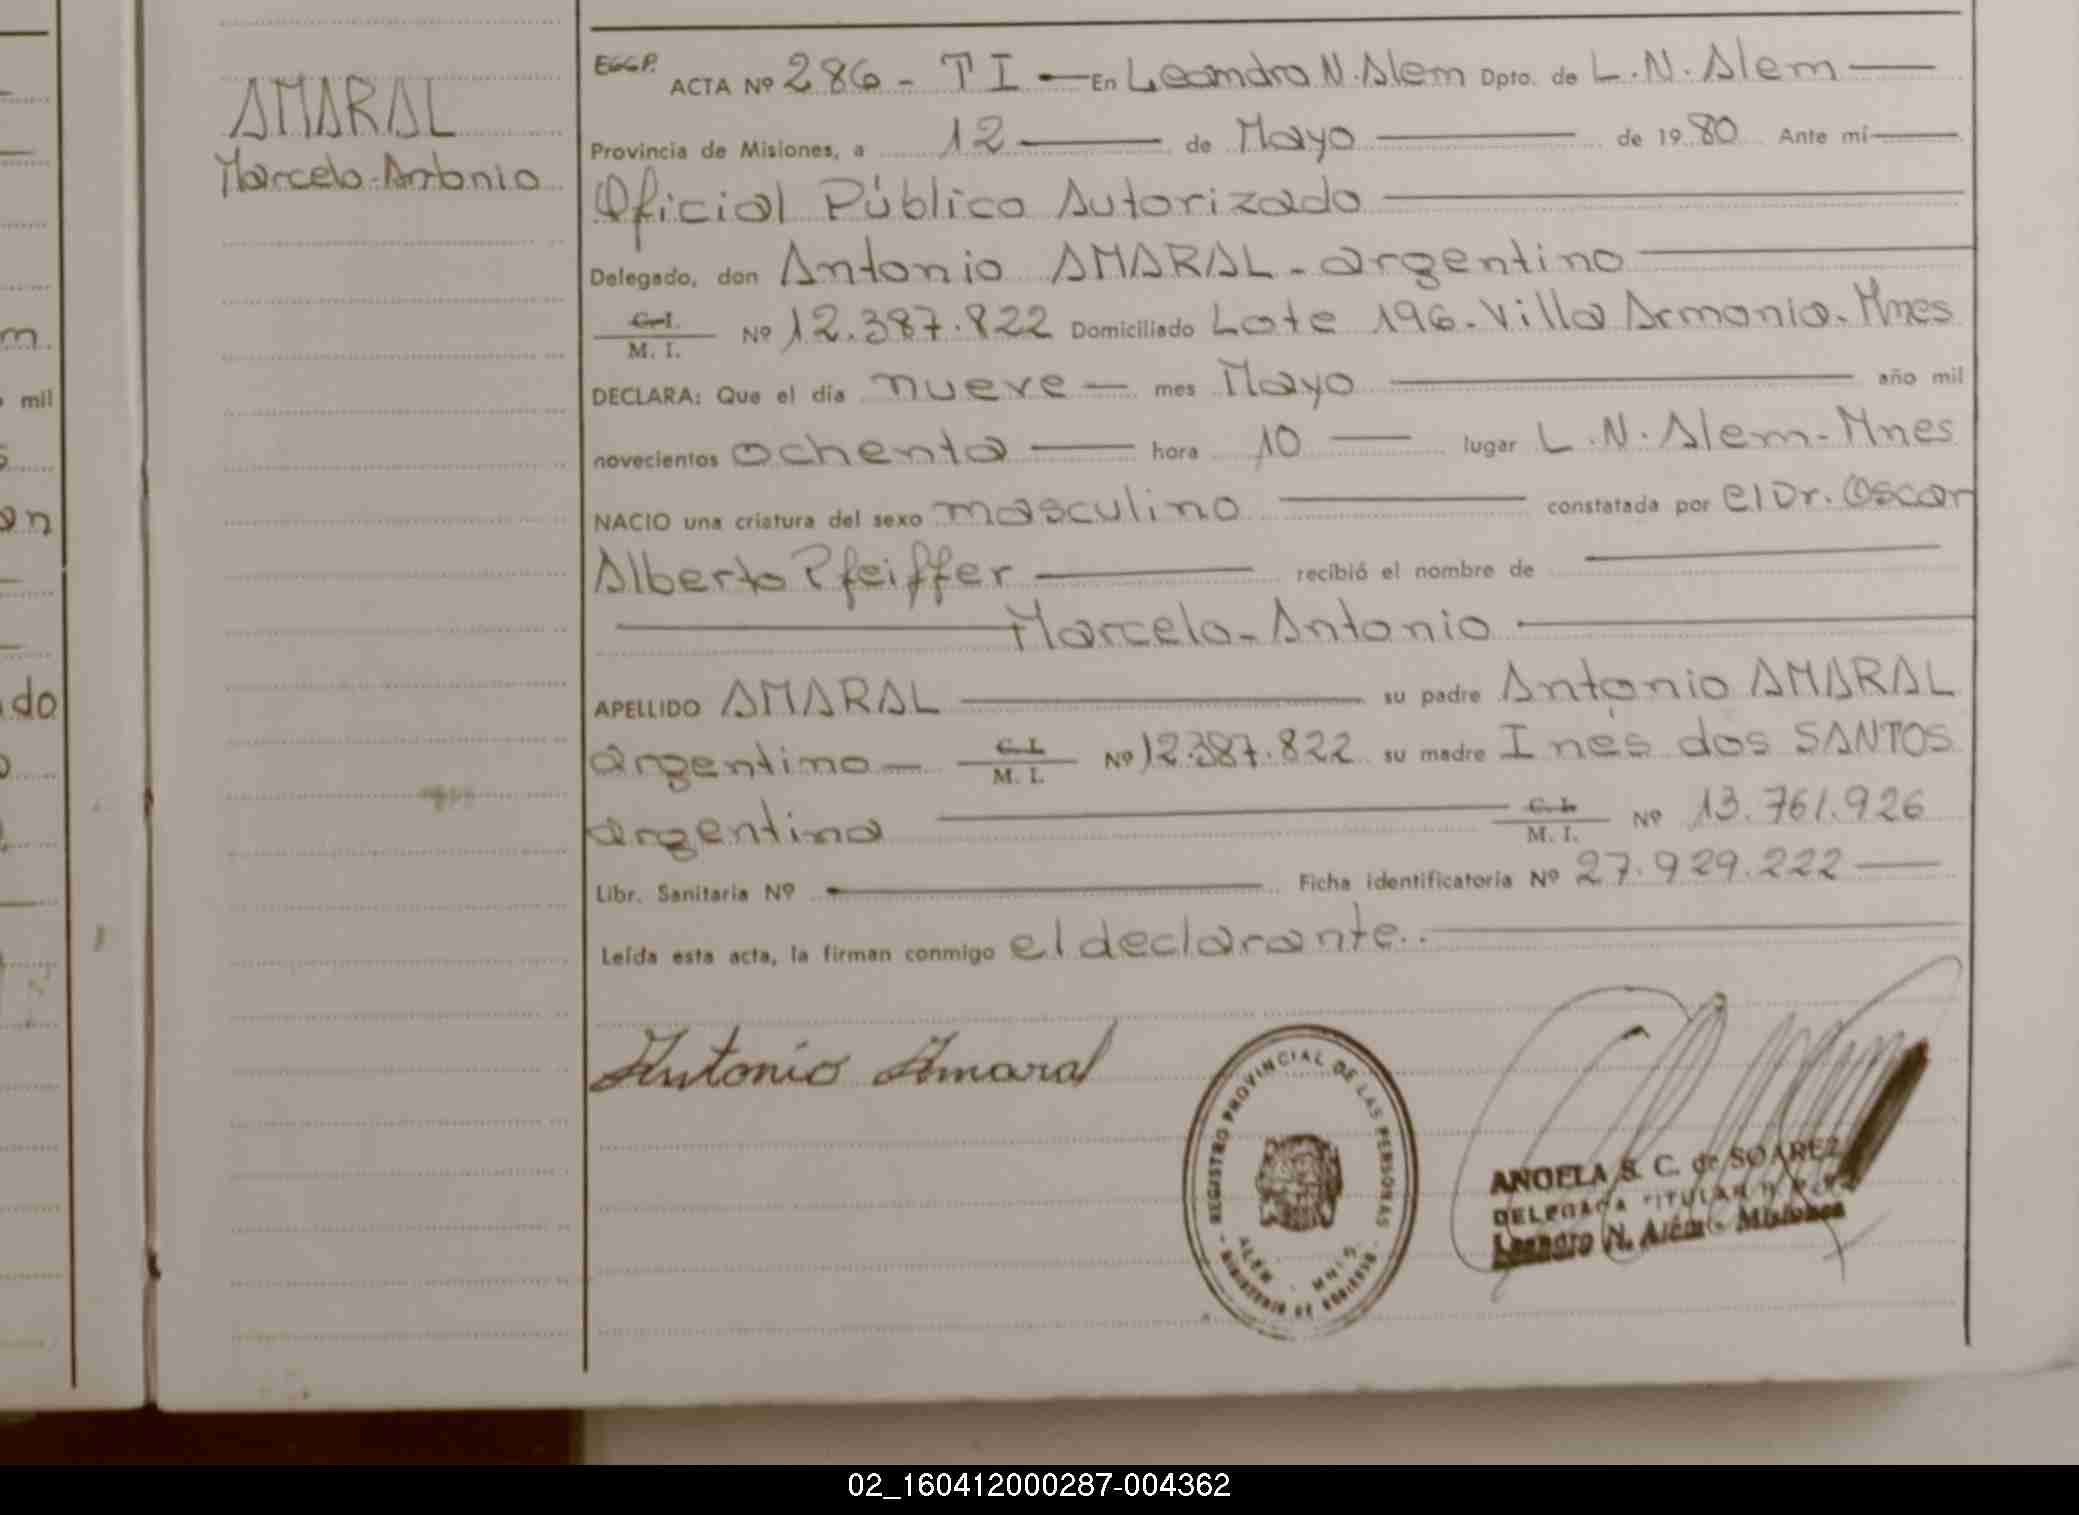 AMARAL
Marcelo-Antonio
EGGP.
ACTA Nº 286 - T I — En Leandro N. Alem Dpto. de L.N. Alem —
Provincia de Misiones, a 12 — de Mayo — de 19 80 Ante mí —
Oficial Público Autorizado —
Delegado, don Antonio AMARAL - argentino —
C. I.
M. I.
Nº 12.387.822 Domiciliado Lote 196 - Villa Armonia - Mnes
DECLARA: Que el día nueve — mes Mayo — año mil
novecientos ochenta — hora 10 — lugar L.N. Alem - Mnes
NACIO una criatura del sexo masculino — constatada por el Dr. Oscar
Alberto Pfeiffer — recibió el nombre de —
— Marcelo-Antonio —
APELLIDO AMARAL — su padre Antonio AMARAL
argentino — C. I. M. I. Nº 12.387.822 su madre Inés dos SANTOS
argentina — C. I. M. I. Nº 13.761.926
Libr. Sanitaria Nº — Ficha identificatoria Nº 27.929.222 —
Leída esta acta, la firman conmigo el declarante. —
Antonio Amaral
REGISTRO PROVINCIAL DE LAS PERSONAS
ALEM - MNES
MINISTERIO DE GOBIERNO
ANGELA S. C. de SOAREZ
DELEGADA TITULAR
Leandro N. Alem - Misiones
mil
an
do
02_160412000287-004362